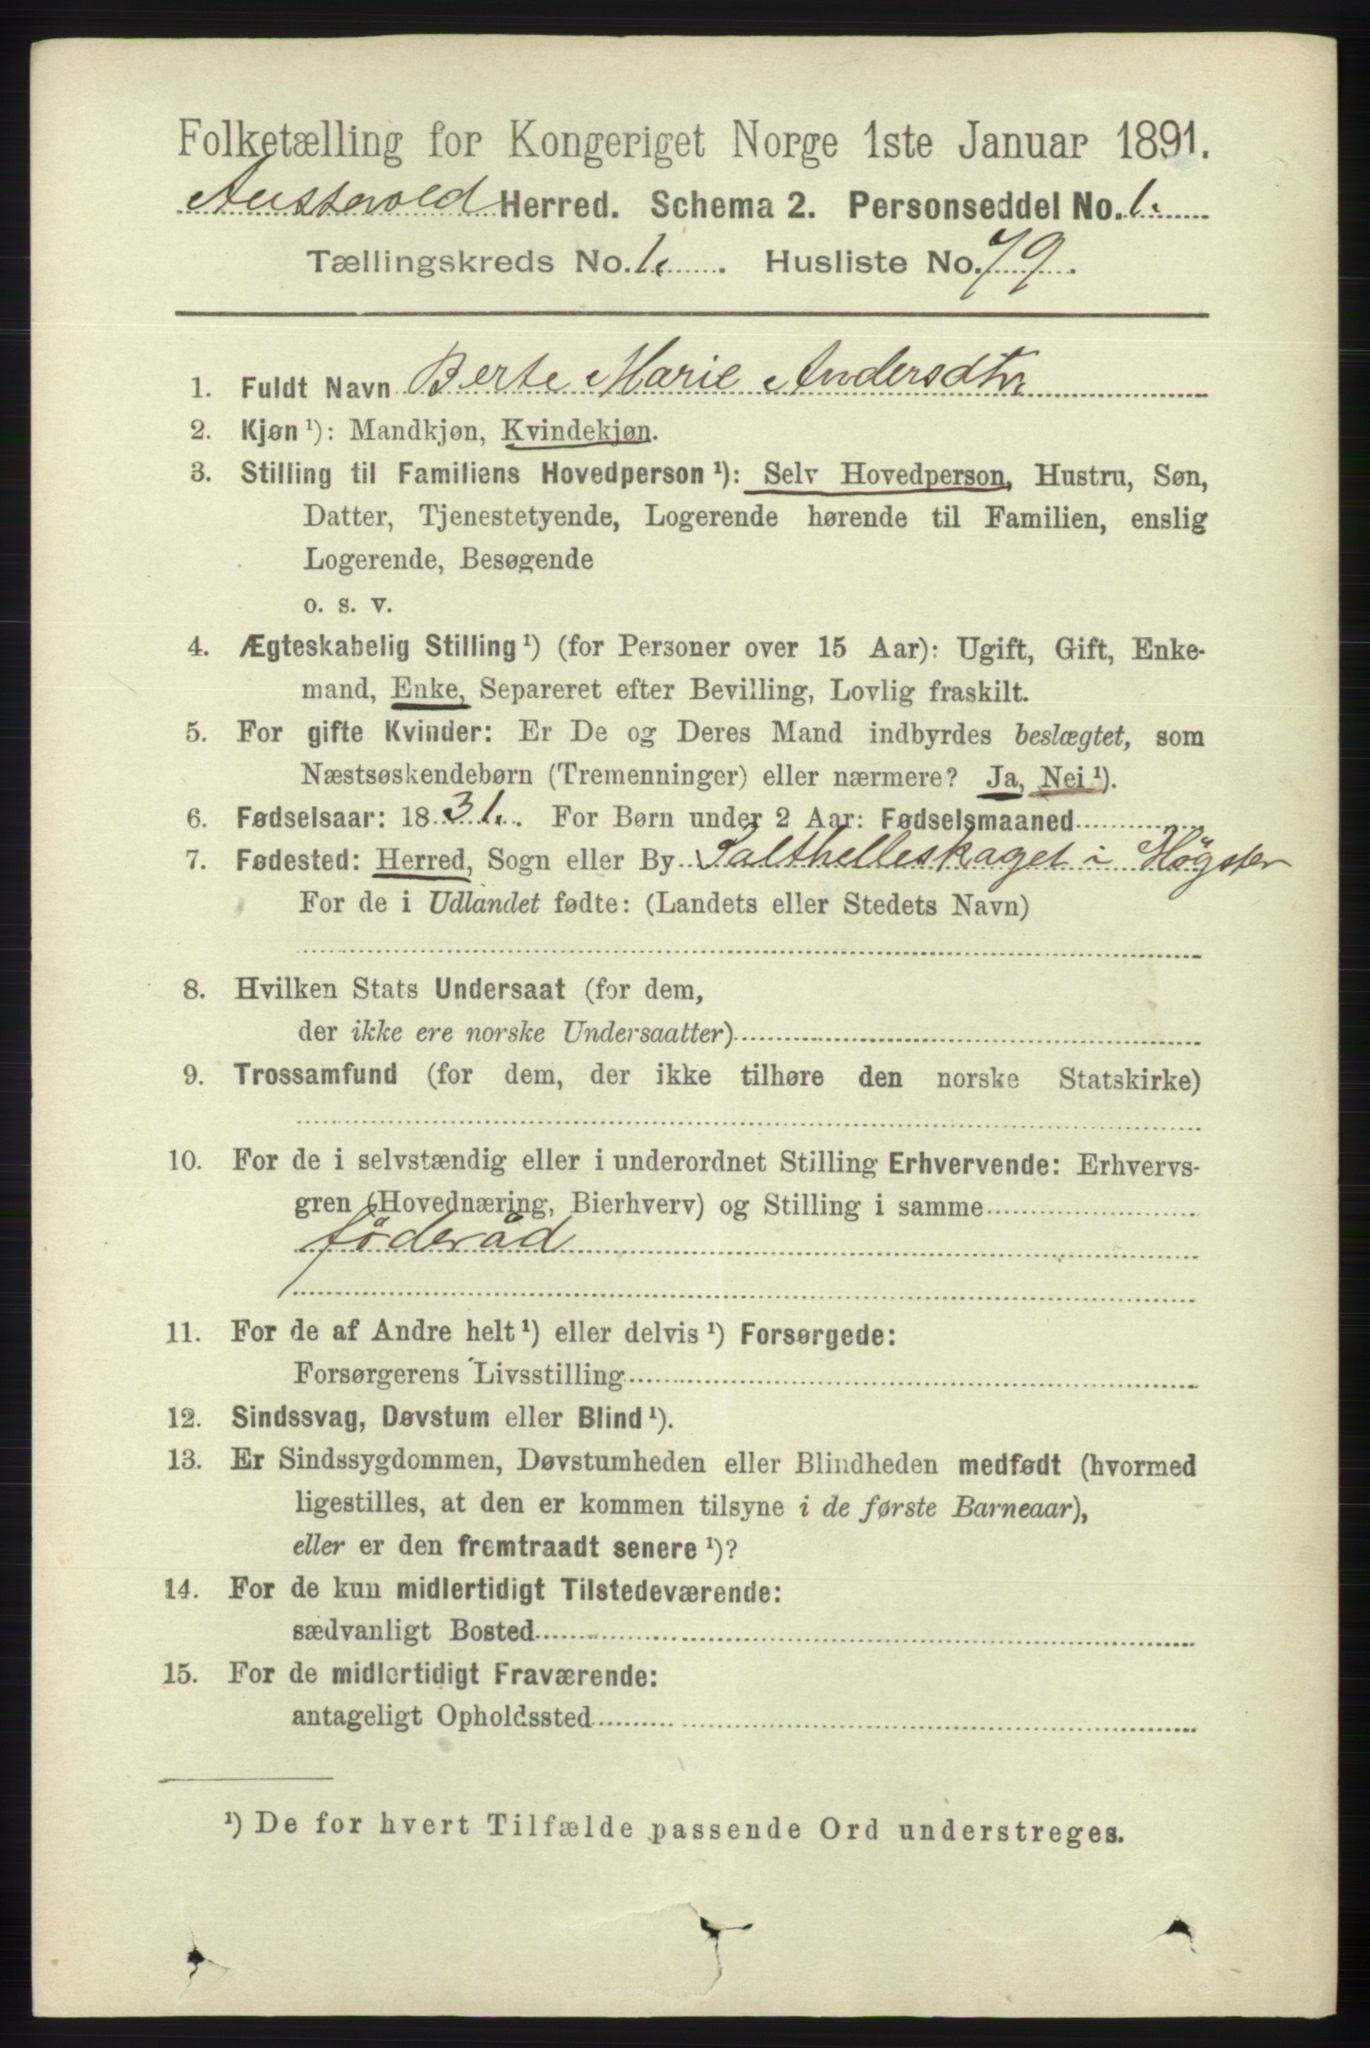 Folketælling for Kongeriget Norge 1ste Januar 1891.
Austevold Herred. Schema 2. Personseddel No. 1.
Tællingskreds No. 1. Husliste No. 79.
1. Fuldt Navn Berte Marie Andersdtr
2. Kjøn ¹): Mandkjøn, Kvindekjøn.
3. Stilling til Familiens Hovedperson ¹): Selv Hovedperson, Hustru, Søn,
Datter, Tjenestetyende, Logerende hørende til Familien, enslig
Logerende, Besøgende
o. s. v.
4. Ægteskabelig Stilling ¹) (for Personer over 15 Aar): Ugift, Gift, Enke-
mand, Enke, Separeret efter Bevilling, Lovlig fraskilt.
5. For gifte Kvinder: Er De og Deres Mand indbyrdes beslægtet, som
Næstsøskendebørn (Tremenninger) eller nærmere? Ja, Nei ¹).
6. Fødselsaar: 1831. For Børn under 2 Aar: Fødselsmaaned
7. Fødested: Herred, Sogn eller By Salthelleskaget i Høgster
For de i Udlandet fødte: (Landets eller Stedets Navn)
8. Hvilken Stats Undersaat (for dem,
der ikke ere norske Undersaatter)
9. Trossamfund (for dem, der ikke tilhøre den norske Statskirke)
10. For de i selvstændig eller i underordnet Stilling Erhvervende: Erhvervs-
gren (Hovednæring, Bierhverv) og Stilling i samme
föderåd
11. For de af Andre helt ¹) eller delvis ¹) Forsørgede:
Forsørgerens Livsstilling
12. Sindssvag, Døvstum eller Blind ¹).
13. Er Sindssygdommen, Døvstumheden eller Blindheden medfødt (hvormed
ligestilles, at den er kommen tilsyne i de første Barneaar),
eller er den fremtraadt senere ¹)?
14. For de kun midlertidigt Tilstedeværende:
sædvanligt Bosted
15. For de midlertidigt Fraværende:
antageligt Opholdssted
¹) De for hvert Tilfælde passende Ord understreges.